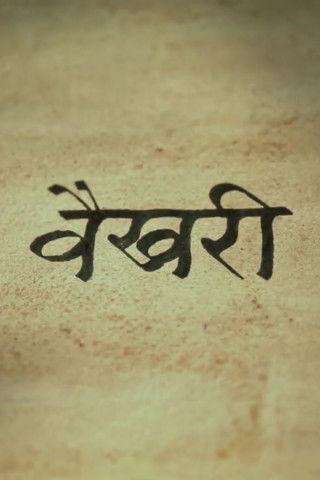 वैखरी